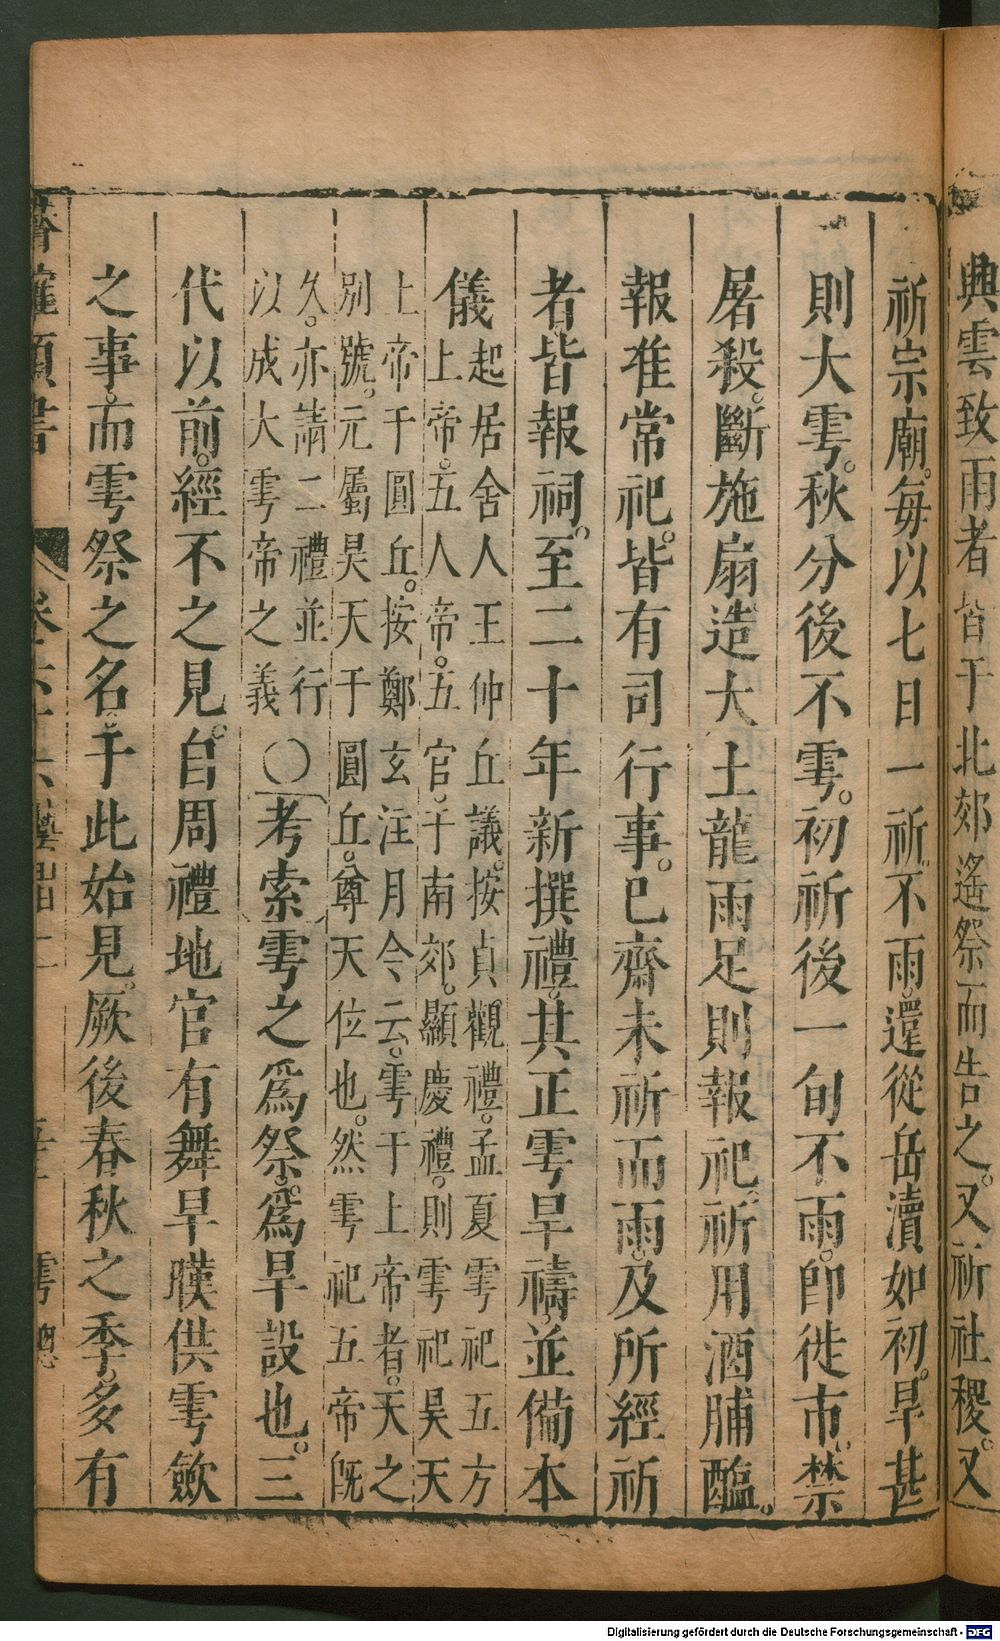 興雲致雨者皆于北郊遙祭而告之又祈社稷又
祈宗廟每以七日一祈不雨還從岳瀆如初旱甚
則大雩秋分後不雩初祈後一旬不雨即徙市禁
屠殺斷施扇造大土龍雨足則報祀祈用酒脯醢
報准常祀皆有司行事已齋未祈而雨及所經祈
者皆報祠至二十年新撰禮其正雩旱禱並備本
儀起居舍人王仲丘議按貞觀禮孟夏雩祀五方
上帝五人帝五官于南郊顯慶禮則雩祀昊天
上帝于圓丘按鄭玄注月令云雩于上帝者天之
別號元屬昊天于圓丘尊天位也然雩祀五帝旣
久亦請二禮並行
以成大雩帝之義
〇考索雩之爲祭爲旱設也三
代以前經不之見自周禮地官有舞旱暵供雩斂
之事而雩祭之名于此始見厥後春秋之季多有
雩總
Digitalisierung gefördert durch die Deutsche Forschungsgemeinschaft - DFG